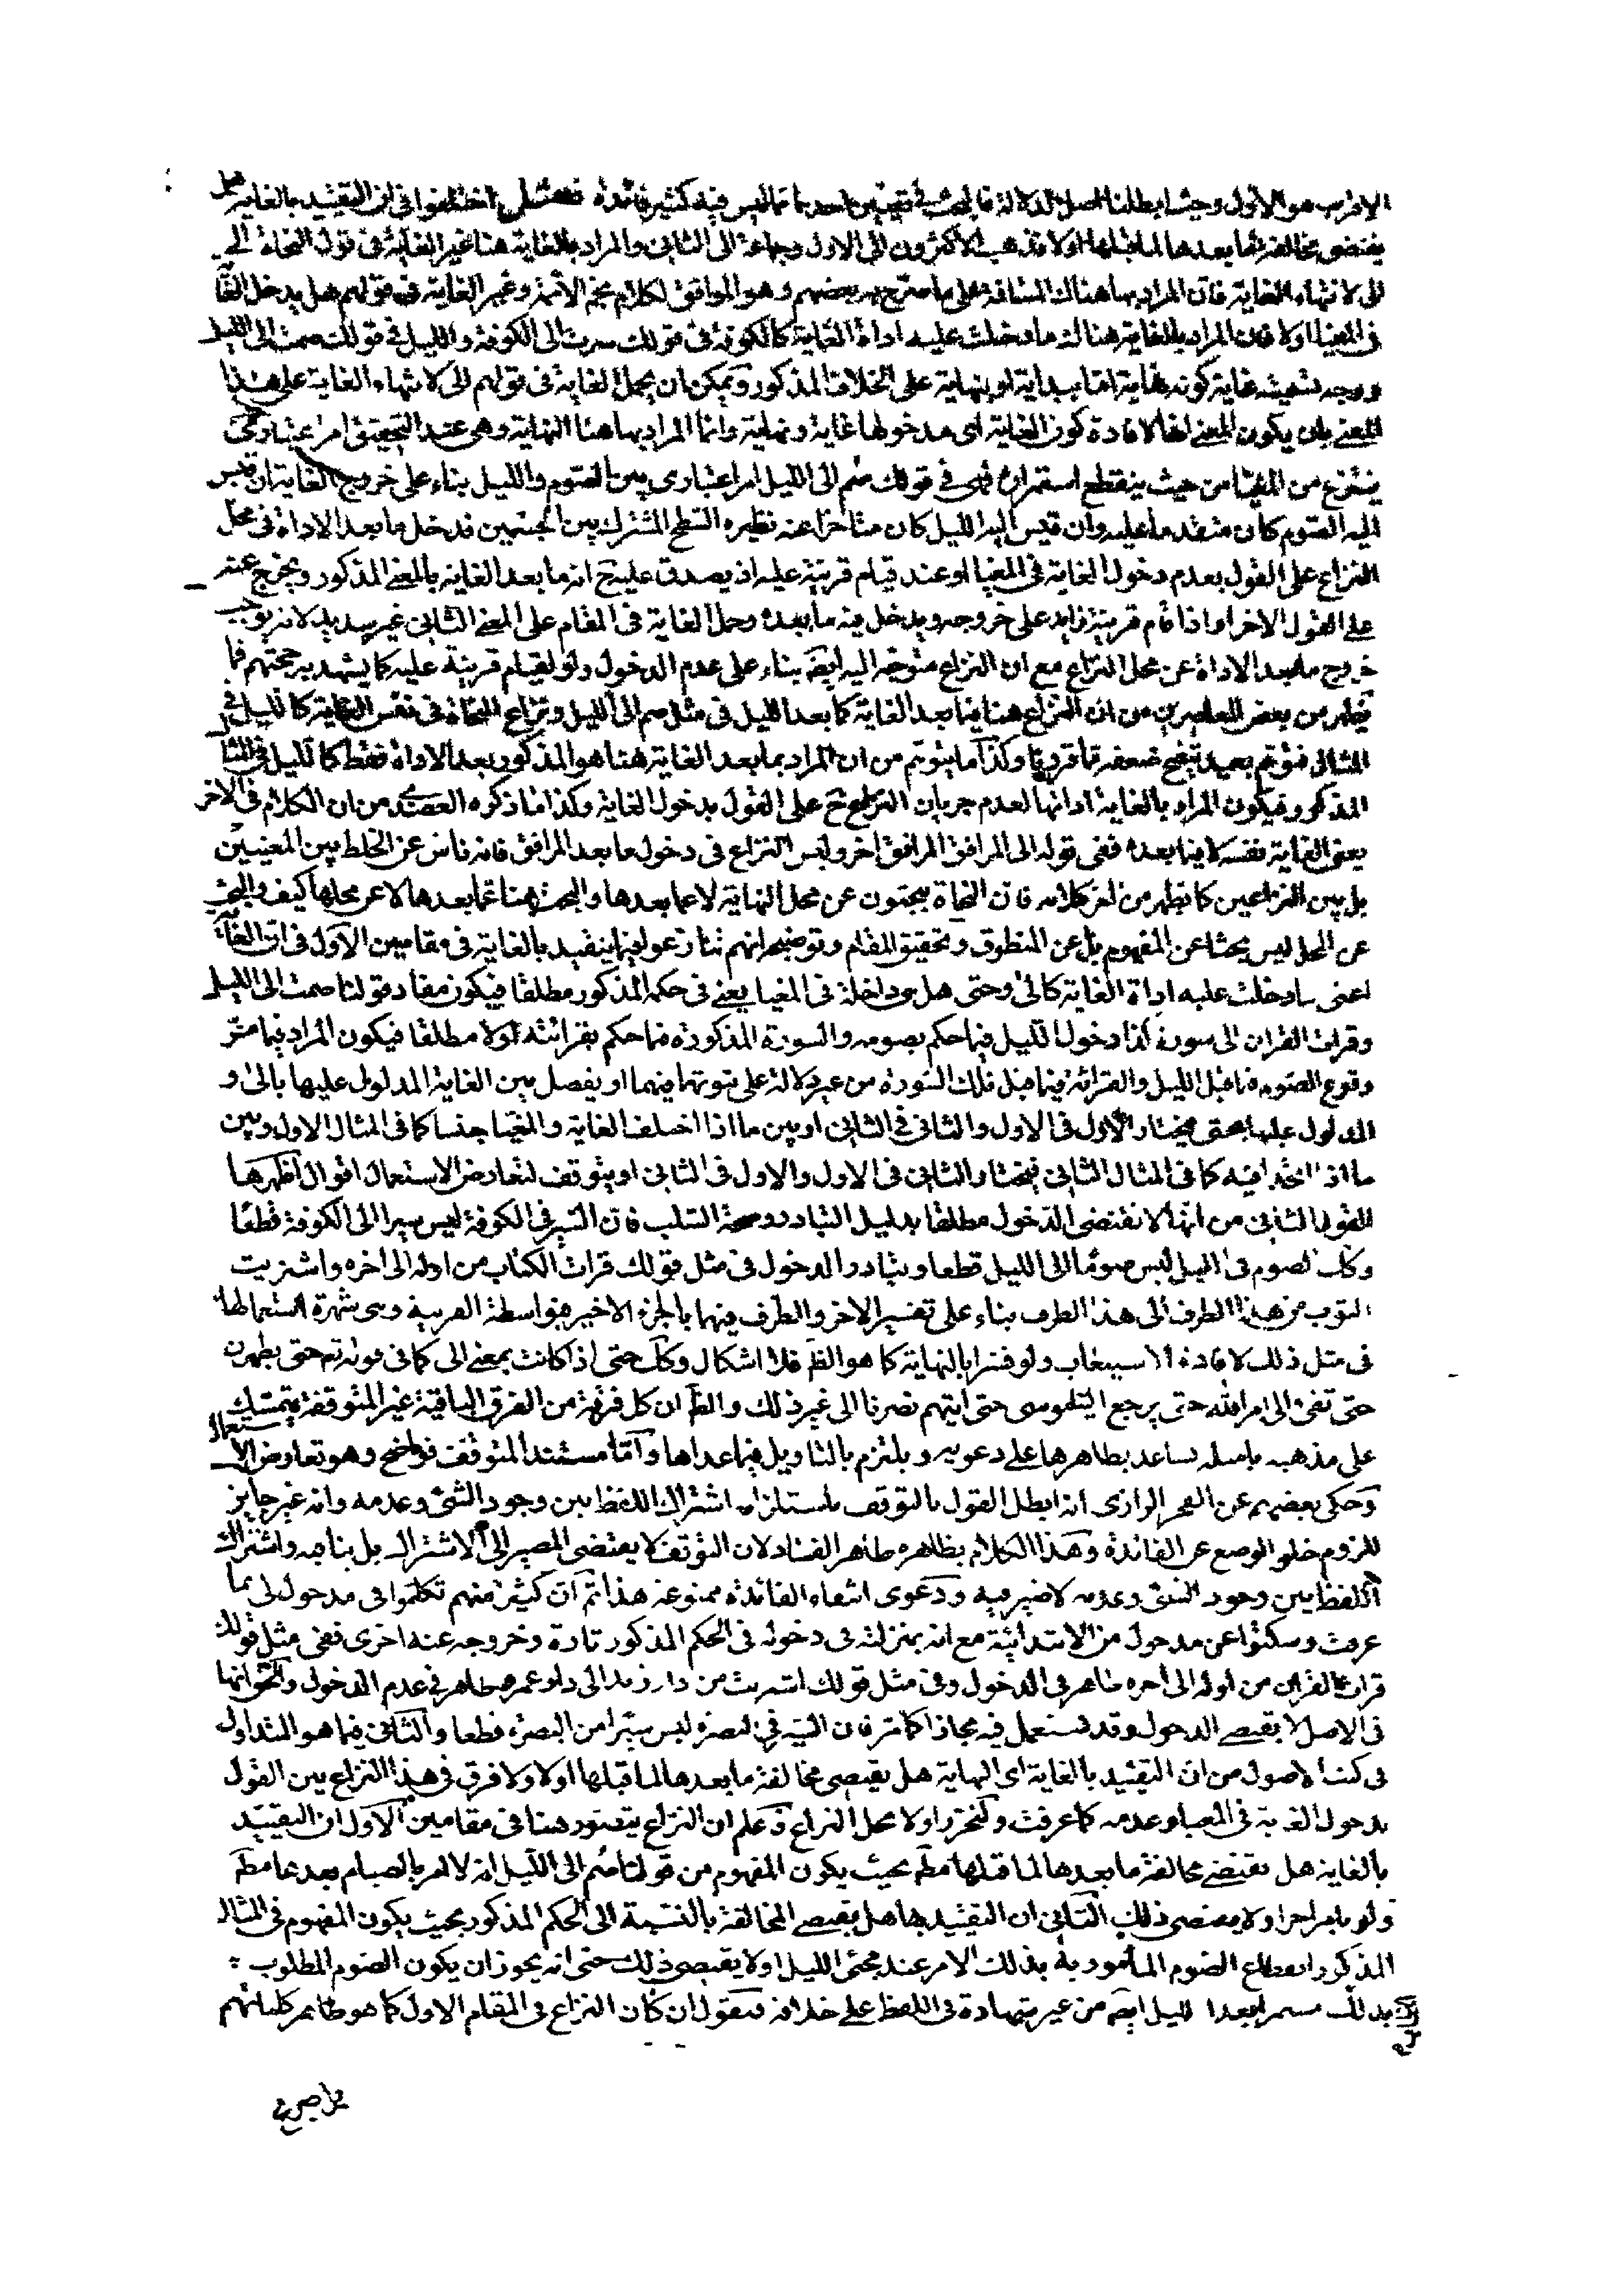 الاقرب هو الاول وحيث ابطلنا اصل الدلالة فالبحث في تعيين احدهما مما ليس فيه كثير فائدة فصل اختلفوا في ان التقييد بالغاية هل
يقتضي مخالفة ما بعدها لما قبلها اولا فذهب الاكثرون الى الاول وجماعة الى الثاني والمراد بالغاية هنا غير الغاية في قول النحاة الى
الى لانتهاء الغاية فان المراد بها هناك المسافة على ما صرح به بعضهم وهو الموافق لكلام نجم الائمة وغير الغاية في قولهم هل يدخل الغاية
في المغيا اولا فان المراد بالغاية هناك ما دخلت عليه اداة الغاية كالكوفة في قولك سرت الى الكوفة والليل في قولك صمت الى الليل
ووجه تسميته غاية كونه غاية اما بداية او نهاية على الخلاف المذكور ويمكن ان يحمل الغاية في قولهم الى لانتهاء الغاية على هذا
المعنى بان يكون المعنى انها لافادة كون الغاية اى مدخولها غاية ونهاية وانما المراد بها هنا النهاية وهى عند التحقيق امر اعتبارى
ينتزع من المغيا من حيث ينقطع استمراره فهى في قولك صم الى الليل امر اعتبارى بين الصوم والليل بناء على خروج الغاية ان قيس
اليه الصوم كان متقدما عليه وان قيس اليه الليل كان متاخرا عنه نظيره السطح المشترك بين الجسمين فدخل ما بعد الاداة في محل
النزاع على القول بعدم دخول الغاية في المغيا او عند قيام قرينة عليه اذ يصدق عليه ح انه ما بعد الغاية بالمعنى المذكور ويخرج عنه
على القول الاخر او اذا قام قرينة على خروجه ويدخل فيه ما بعده وحمل الغاية في المقام على المعنى الثاني غير سديد لانه يوجب
خروج ما بعد الاداة عن محل النزاع مع ان النزاع متوجه اليه ايضا بناء على عدم الدخول ولو لقيام قرينة عليه كما يشهد به حجتهم فما
يظهر من بعض المعاصرين من ان النزاع هنا فيما بعد الغاية كما بعد الليل في مثل صم الى الليل ونزاع النحاة في نفس الغاية كالليل في
المثال فتوهم بعيد يتضح ضعفه مما قررنا وكذا ما يتوهم من ان المراد بما بعد الغاية هنا هو المذكور بعد الاداة فقط كالليل في المثال
المذكور فيكون المراد بالغاية اداتها لعدم جريان النزاع ح على القول بدخول الغاية وكذا ما ذكره العضدى من ان الكلام في الاخر
يعنى الغاية نفسه لا فيما بعده ففي قوله الى المرافق المرافق اخر وليس النزاع في دخول ما بعد المرافق فانه ناش عن الخلط بين المعنيين
بل بين النزاعين كما يظهر من كلامه فان النحاة يبحثون عن محل النهاية لا عما بعدها والبحث هنا عما بعدها لا عن محلها كيف والبحث
عن المحل ليس بحثا عن المفهوم بل عن المنطوق وتحقيق المقام وتوضيحه انهم تنازعوا فيما يتقيد بالغاية في مقامين الاول في ان الغاية
اعنى ما دخلت عليه اداة الغاية كالى وحتى هل هى داخلة في المغيا يعنى في حكمه المذكور مطلقا فيكون مفاد قولنا صمت الى الليل
وقرات القران الى سورة كذا دخول الليل فيما حكم بصومه والسورة المذكورة فيما حكم بقرائته اولا مطلقا فيكون المراد فيما مر
وقوع الصوم فيما قبل الليل والقرائة فيما قبل تلك السورة من غير دلالة على ثبوتها فيهما او يفصل بين الغاية المدلول عليها بالى و
المدلول عليها بحتى فيختار الاول في الاول والثاني في الثاني او بين ما اذا اختلف الغاية والمغيا جنسا كما في المثال الاول وبين
ما اذا اتحدا فيه كما في المثال الثاني فيختار الثاني في الاول والاول في الثاني او يتوقف لتعارض الاستعمال اقوال اظهرها
القول الثاني من انها لا تقتضى الدخول مطلقا بدليل التبادر وصحة السلب فان السير في الكوفة ليس سيرا الى الكوفة قطعا
وكك الصوم في الليل ليس صوما الى الليل قطعا وتبادر الدخول في مثل قولك قرات الكتاب من اوله الى اخره واشتريت
الثوب من هذا الطرف الى هذا الطرف بناء على تفسير الاخر والطرف فيهما بالجزء الاخير فبواسطة القرينة وهى شهرة استعمالها
في مثل ذلك لافادة الاستيعاب ولو فسرا بالنهاية كما هو الظ فلا اشكال وكك حتى اذا كانت بمعنى الى كما في قوله تم حتى يطهرن
حتى تفئ الى امر الله حتى يرجع الينا موسى حتى اتيهم نصرنا الى غير ذلك والظ ان كل فرقة من الفرق الباقية غير المتوقفة يتمسك
على مذهبه بامثلة تساعد بظاهرها على دعويه ويلتزم بالتاويل فيما عداها واما مستند المتوقف فواضح وهو تعارض الاستعمال
وحكى بعضهم عن الفخر الرازى انه ابطل القول بالتوقف باستلزامه اشتراك اللفظ بين وجود الشئ وعدمه وانه غير جايز
للزوم خلو الوضع عن الفائدة وهذا الكلام بظاهره ظاهر الفساد لان التوقف لا يقتضى المصير الى الاشتراك بل ينافيه واشتراك
اللفظ بين وجود الشئ وعدمه لا ضير فيه ودعوى انتفاء الفائدة ممنوعة هذا ثم ان كثيرا منهم تكلموا في مدخول الى بما
عرفت وسكتوا عن مدخول من الابتدائية مع انه بمنزلته في دخوله في الحكم المذكور تارة وخروجه عنه اخرى ففي مثل قولك
قرات القران من اوله الى اخره ظاهر في الدخول وفي مثل قولك اشتريت من دار زيد الى دار عمرو ظاهر في عدم الدخول والحق انها
في الاصل لا يقتضى الدخول وقد تستعمل فيه مجازا كما مر فان السير في البصرة ليس سيرا من البصرة قطعا والثاني فيما هو المتداول
في كتب الاصول من ان التقييد بالغاية اى النهاية هل يقتضى مخالفة ما بعدها لما قبلها اولا ولا فرق في هذا النزاع بين القول
بدخول الغاية في المغيا وعدمه كما عرفت ولنحرر اولا محل النزاع فاعلم ان النزاع يتصور هنا في مقامين الاول ان التقييد
بالغاية هل يقتضى مخالفة ما بعدها لما قبلها مط بحيث يكون المفهوم من قولنا صم الى الليل انه لا امر بالصيام بعده مط
ولو بامر اخر اولا يقتضى ذلك الثاني ان التقييد بها هل يقتضى المخالفة بالنسبة الى الحكم المذكور بحيث يكون المفهوم في المثال
المذكور انقطاع الصوم المأمور به بذلك الامر عند مجئ الليل اولا يقتضى ذلك حتى انه يجوز ان يكون الصوم المطلوب
بذلك مستمرا بعد الليل ايضا من غير شهادة في اللفظ على خلافه فنقول ان كان النزاع في المقام الاول كما هو ظاهر كلماتهم